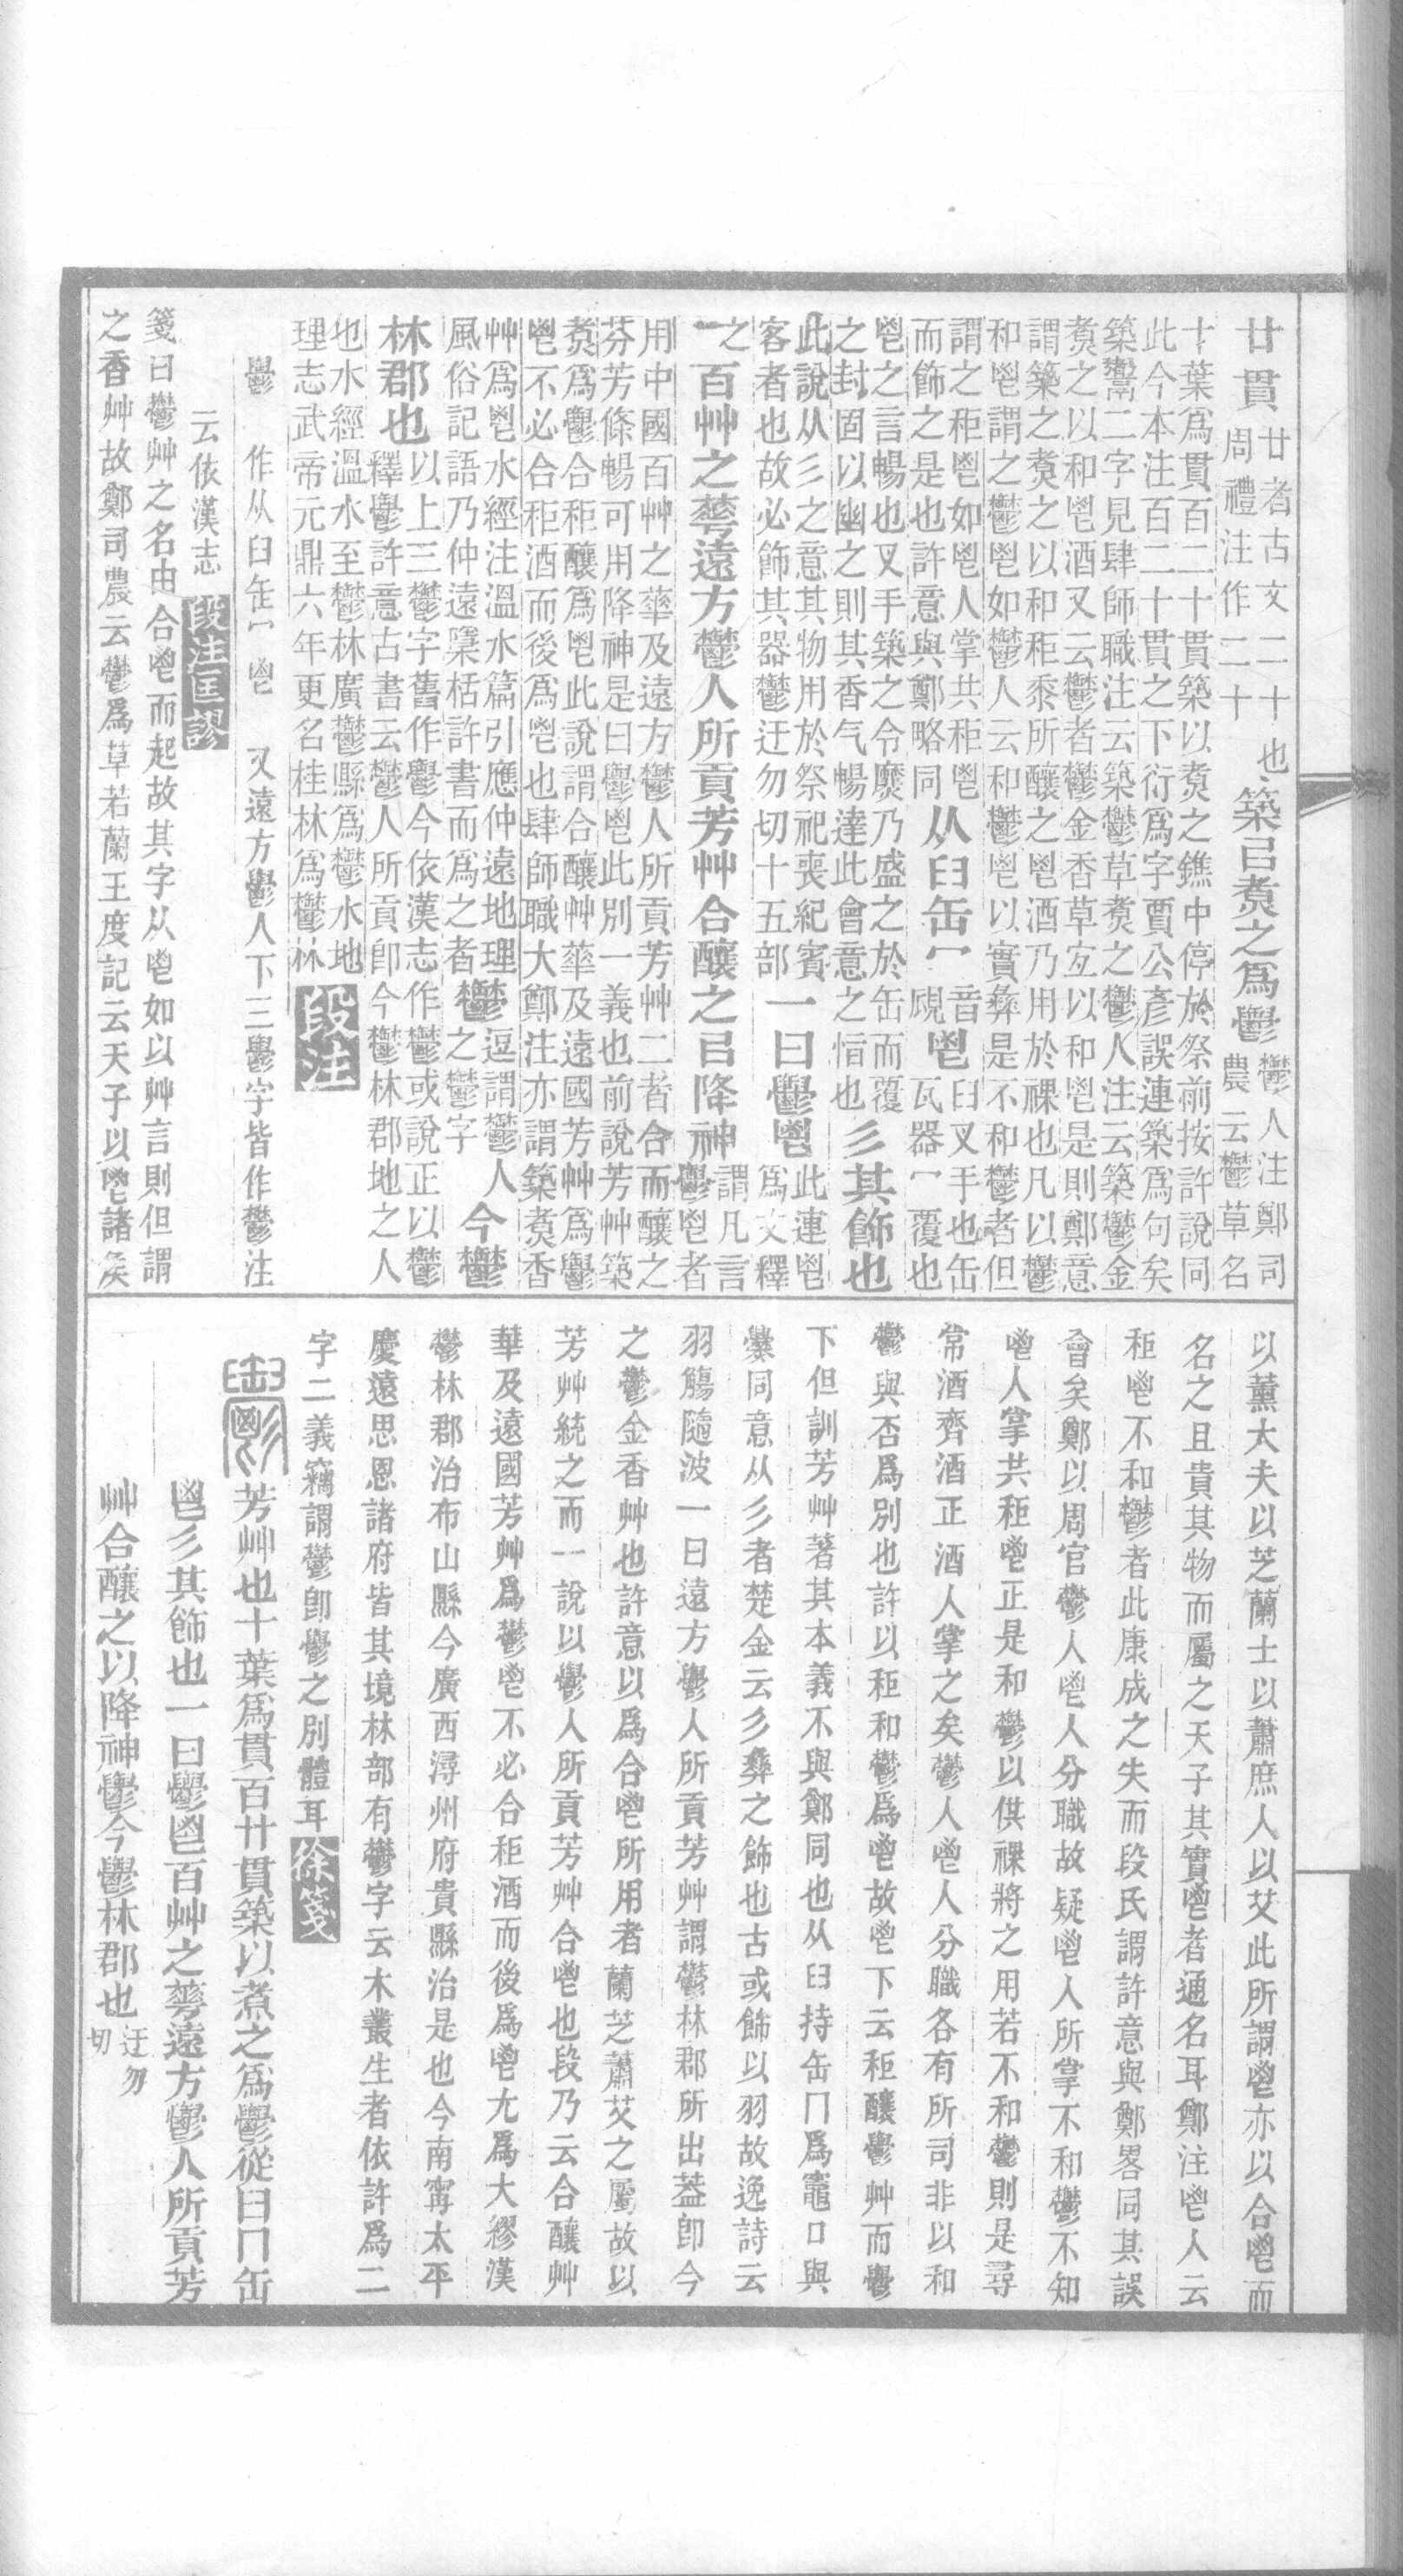 廿貫廿者古文二十也
周禮注作二十
築㠯煑之爲鬱鬱人注鄭司
農云鬱草名
十葉爲貫百二十貫築以煑之鐎中停於祭前按許說同
此今本注百二十貫之下衍爲字賈公彥誤連築爲句矣
築鬻二字見肆師職注云築鬱草煑之鬱人注云築鬱金
煑之以和鬯酒又云鬱者鬱金香草宐以和鬯是則鄭意
謂築之煑之以和秬黍所釀之鬯酒乃用於祼也凡以鬱
和鬯謂之鬱鬯如鬱人云和鬱鬯以實彝是不和鬱者但
謂之秬鬯如鬯人掌共秬鬯
而飾之是也許意與鄭略同
从𦥑缶冖音覛鬯𦥑叉手也缶
瓦器冖覆也
鬯之言暢也叉手築之令麋乃盛之於缶而覆
之封固以幽之則其香气暢達此會意之恉也
彡其飾也
此說从彡之意其物用於祭祀喪紀賓
客者也故必飾其器鬱迂勿切十五部
一曰鬱鬯此連鬯
爲文釋
之
一百艸之蕚遠方鬱人所貢芳艸合釀之㠯降神謂凡言
鬱鬯者
用中國百艸之蕐及遠方鬱人所貢芳艸二者合而釀之
芬芳條暢可用降神是曰鬱鬯此別一義也前說芳艸築
煑爲鬱合秬釀爲鬯此說謂合釀艸蕐及遠國芳艸爲鬱
鬯不必合秬酒而後爲鬯也肆師職大鄭注亦謂築煑香
艸爲鬯水經注溫水篇引應仲遠地理
風俗記語乃仲遠櫽栝許書而爲之者
鬱逗謂鬱人
之鬱字
今鬱
林郡也以上三鬱字舊作鬱今依漢志作鬱或說正以鬱
釋鬱許意古書云鬱人所貢卽今鬱林郡地之人
也水經溫水至鬱林廣鬱縣爲鬱水地
理志武帝元鼎六年更名桂林爲鬱林
段注
鬱　作从𦥑缶冖鬯　又遠方鬱人下三鬱字皆作鬱注
云依漢志段注匡謬
箋曰鬱艸之名由合鬯而起故其字从鬯如以艸言則但謂
之香艸故鄭司農云鬱爲草若蘭王度記云天子以鬯諸矦
以薰大夫以芝蘭士以蕭庶人以艾此所謂鬯亦以合鬯而
名之且貴其物而屬之天子其實鬯者通名耳鄭注鬯人云
秬鬯不和鬱者此康成之失而段氏謂許意與鄭畧同其誤
會矣鄭以周官鬱人鬯人分職故疑鬯人所掌不和鬱不知
鬯人掌共秬鬯正是和鬱以供祼將之用若不和鬱則是尋
常酒齊酒正酒人掌之矣鬱人鬯人分職各有所司非以和
鬱與否爲別也許以秬和鬱爲鬯故鬯下云秬釀鬱艸而鬱
下但訓芳艸著其本義不與鄭同也从𦥑持缶冂爲竈口與
爨同意从彡者楚金云彡彝之飾也古或飾以羽故逸詩云
羽觴隨波一曰遠方鬱人所貢芳艸謂鬱林郡所出葢卽今
之鬱金香艸也許意以爲合鬯所用者蘭芝蕭艾之屬故以
芳艸統之而一說以鬱人所貢芳艸合鬯也段乃云合釀艸
華及遠國芳艸爲鬱鬯不必合秬酒而後爲鬯尢爲大繆漢
鬱林郡治布山縣今廣西潯州府貴縣治是也今南甯太平
慶遠思恩諸府皆其境林部有鬱字云木叢生者依許爲二
字二義竊謂鬱卽鬱之別體耳徐箋
芳艸也十葉爲貫百廿貫築以煮之爲鬱從𦥑冂缶
鬯彡其飾也一曰鬱鬯百艸之蕚遠方鬱人所貢芳
艸合釀之以降神鬱今鬱林郡也迂勿
切